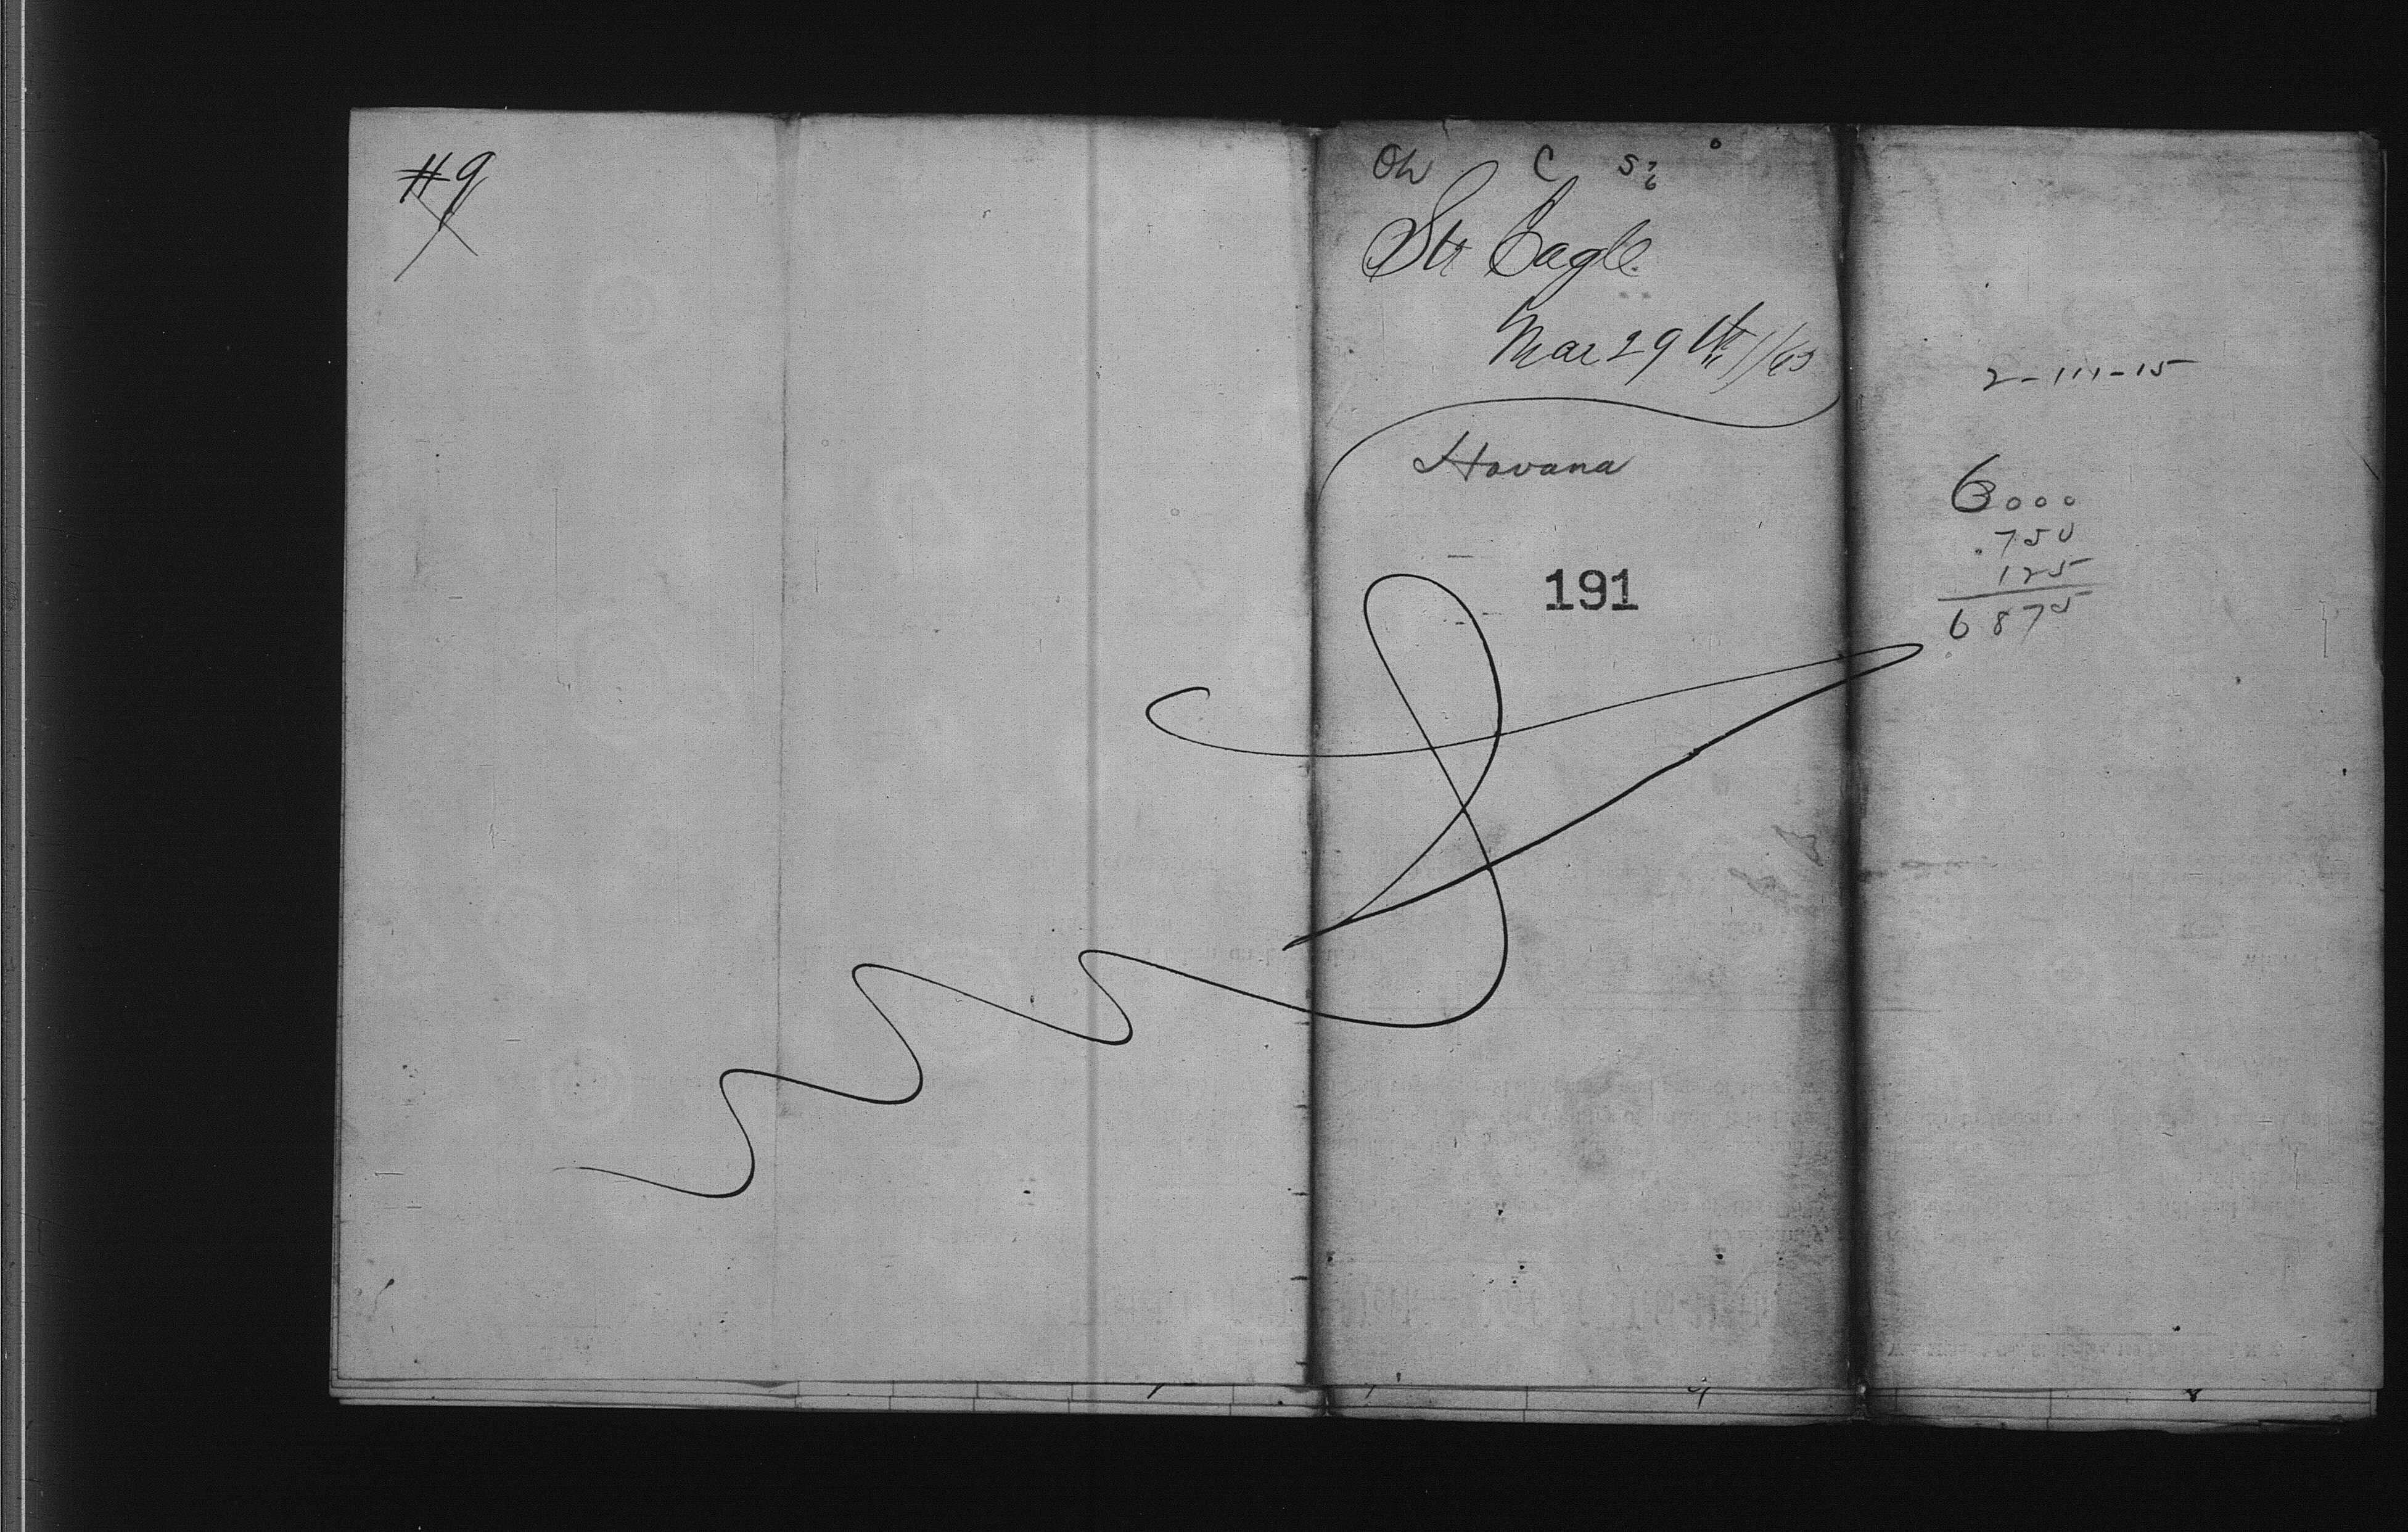 #9
Str Eagle
Mar 29th/65
Havana
191
2-111-15
6000
.750
125
6875